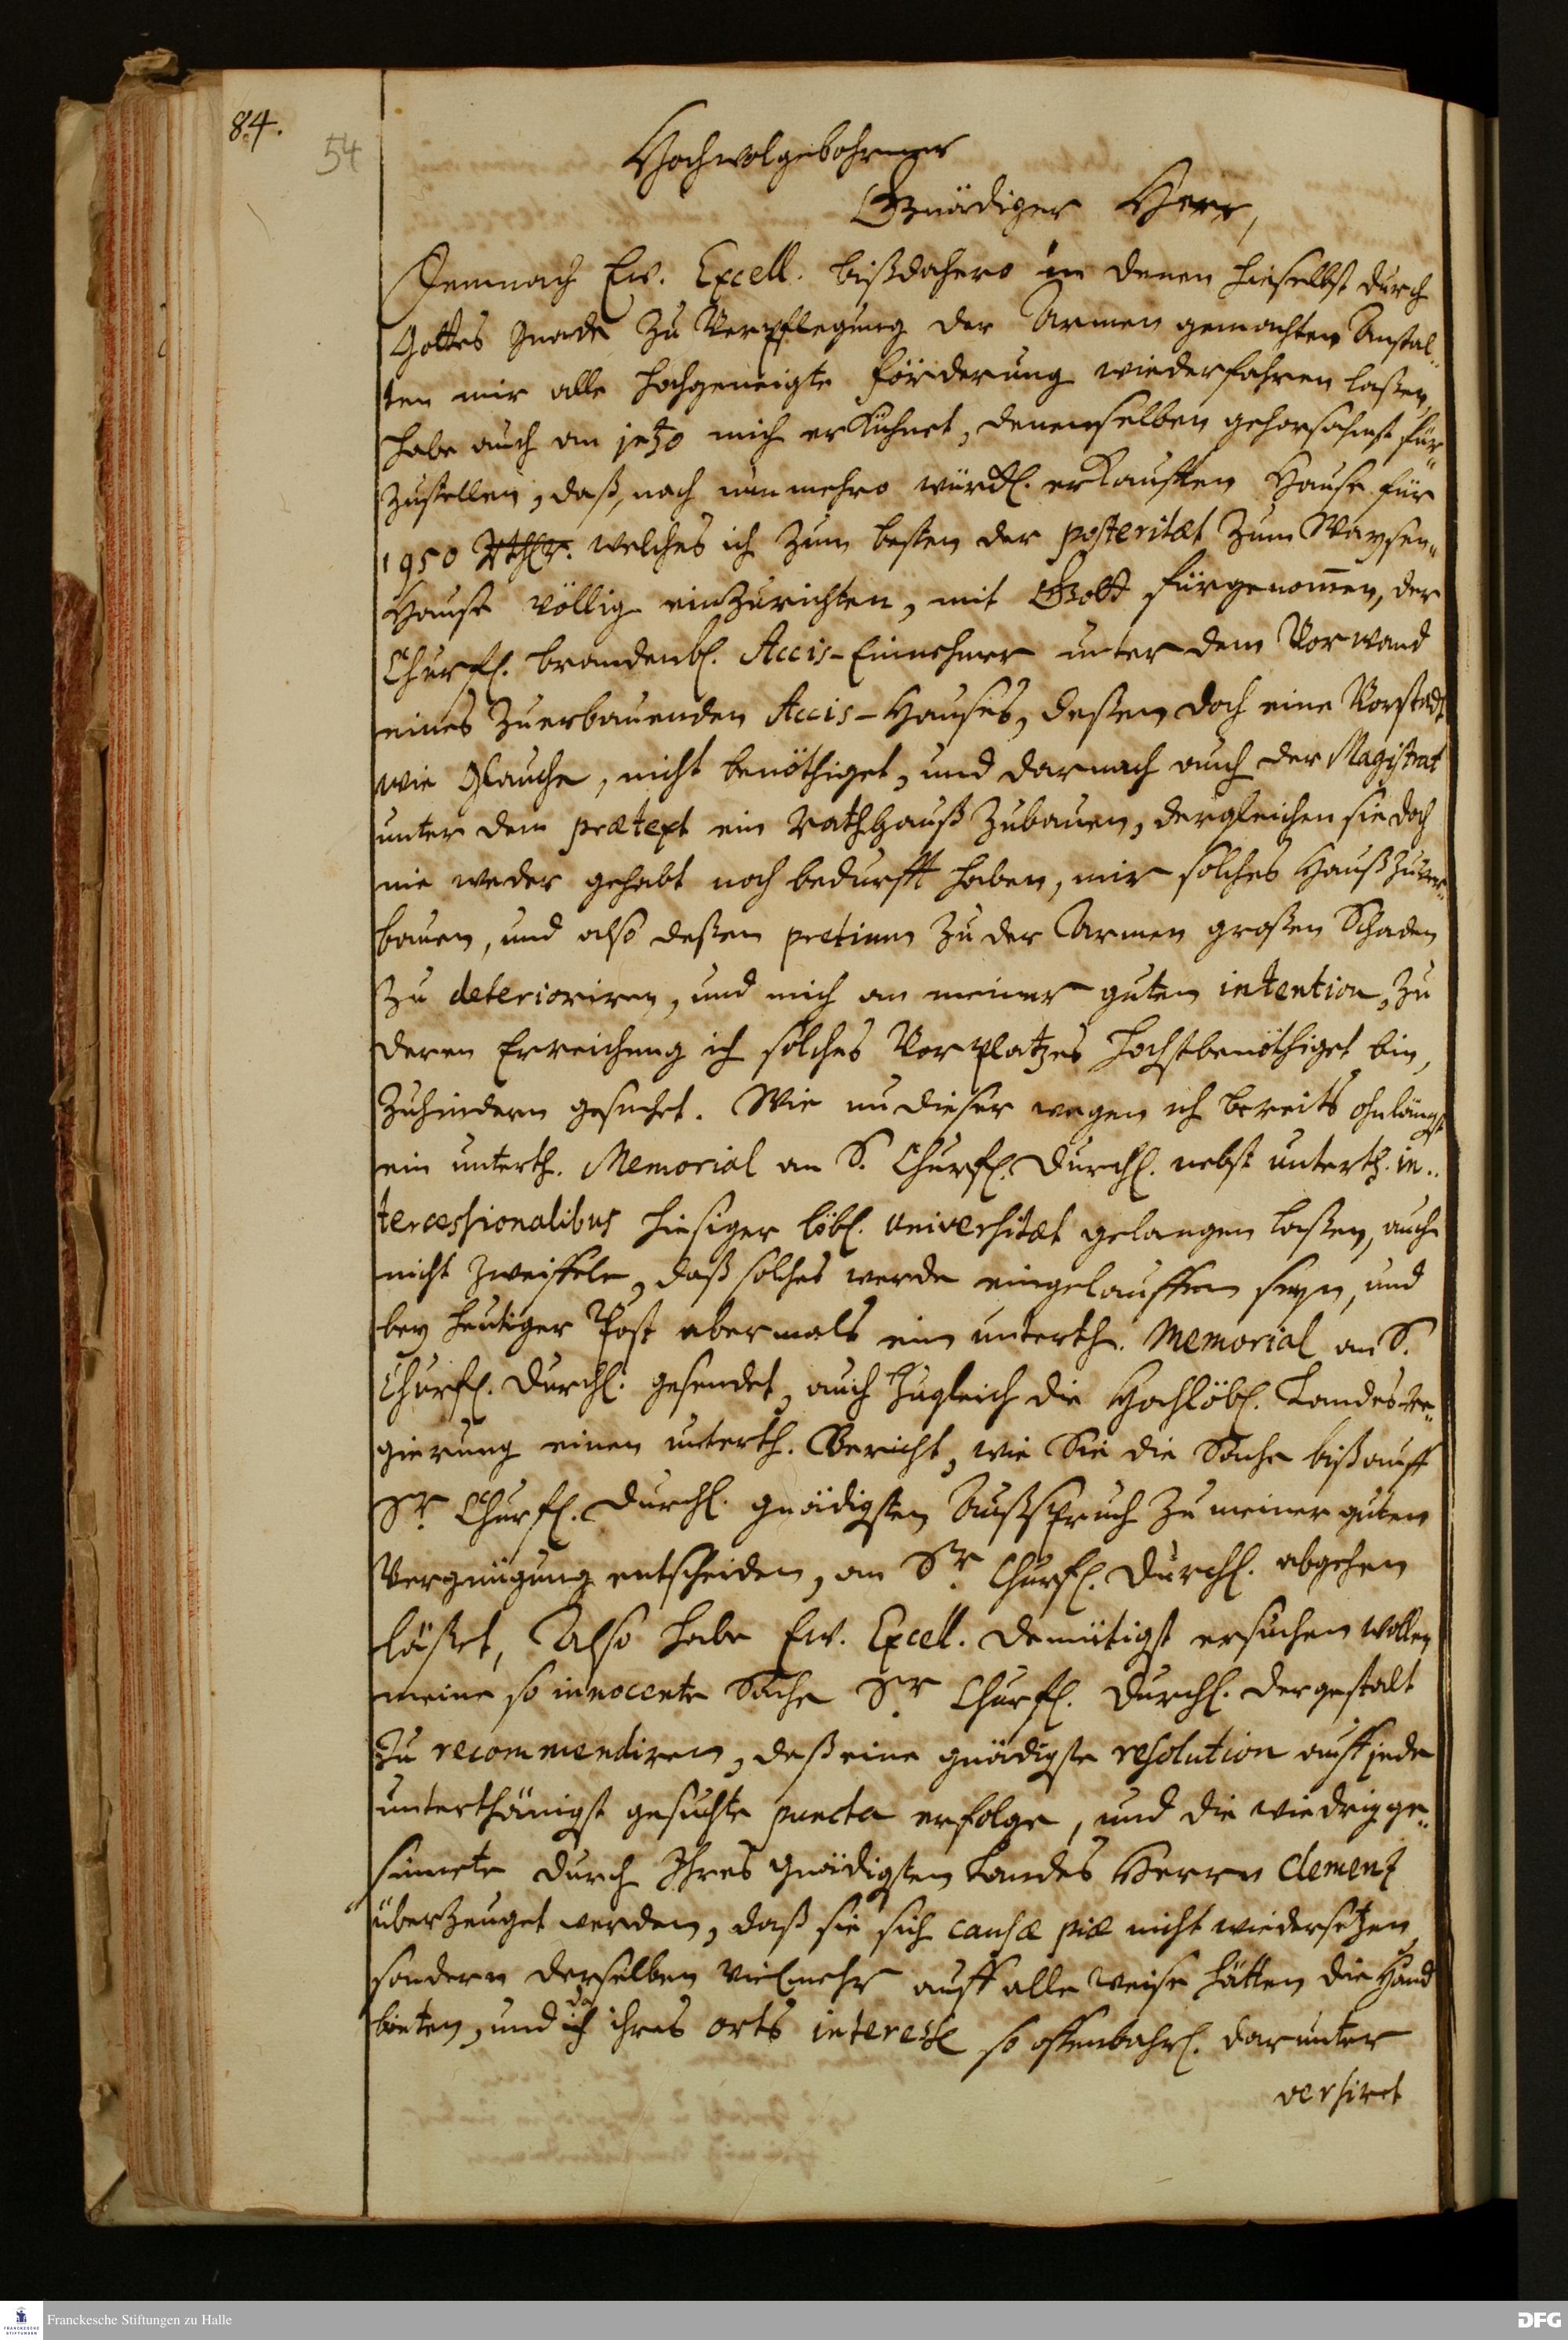 84.
54
Hochwolgebohrner
Gnädiger Herr,
Demnach Ew. Excell. bißdahero in denen hieselbst durch
Gottes Gnade zu Verpflegung der Armen gemachten Anstal„
ten mir alle hochgeneigte förderung wiederfahren laßen,
habe auch an jetzo mich erkühnet, denenselben gehorsahmst für„
zustellen, daß, nach nunmehro würckl. erkaufften Hause für
1950 Rthlr. welches ich zum besten der posteritæt zum Waysen„
Hause völlig einzurichten, mit Gott fürgenom̃en, der
Churfl. brandenbl. Accis-Einnehmer unter dem Vorwand
eines zuerbauenden Accis-Hauses, deßen doch eine Vorstadt
wie Glaucha, nicht benöthiget, und darnach auch der Magistrat
unter dem prætext ein Rathhauß zubauen, dergleichen sie doch
nie weder gehabt noch bedurfft haben, mir solches Hauß zuver„
bauen, und also deßen pretium zu der Armen großen Schaden
zu deterioriren, und mich an meiner guten intention, zu
deren Erreichung ich solches Vorplatzes höchstbenöthiget bin,
zuhindern gesuchet. Wie nu dieser wegen ich bereits ohnlängst
ein unterth. Memorial an S. Churfl. Durchl. nebst unterth. in„
tercessionalibus hiesiger löbl. Universitæt gelangen laßen, auch
nicht zweiffele, daß solches werde eingelauffen seyn, und
bey heutiger Post abermals ein unterth. Memorial an S.
Churfl. Durchl. gesendet, auch zugleich die Hochlöbl. Landes-Re„
gierung einen unterth. Bericht, wie Sie die Sache biß auff
Sr. Churfl. Durchl. gnädigsten Außspruch zu meiner guten
Vergnügung entscheiden, an Sr. Churfl. Durchl. abgehen
läßet, Also habe Ew. Excell. demütigst ersuchen wollen
meine so innocente Sache Sr. Churfl. Durchl. dergestalt
zu recommendiren, daß eine gnädigste resolution auff jede
unterthänigst gesuchte puncta erfolge, und die wiedrig ge„
sinnete durch Ihres gnädigsten Landes Herrn Clementz
überzeuget werden, daß sie sich causæ piæ nicht wiedersetzen,
sondern derselben vielmehr auff alle weise hätten die Hand
bieten, und da ihres orts interesse so offenbahrl. darunter
versiret
Franckesche Stiftungen zu Halle
DFG